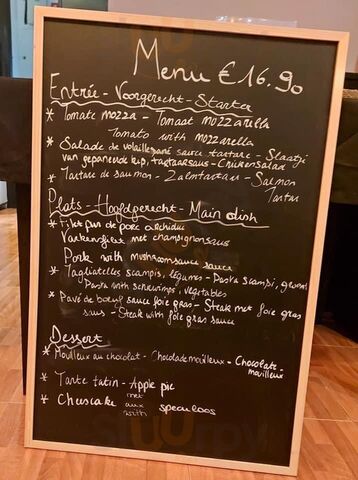 Menu €16.90
Entrée - Voorgerecht - Starter
* Tomate mozza - Tomaat mozzarella
Tomato with mozzarella
* Salade de volaille pané sauce tartare - Slaatje
van gepaneerde kip, tartaarsaus - Chicken salad
* Tartare de saumon - Zalmtartaar - Salmon
Tartar
Plats - Hoofdgerecht - Main dish
* Filet pur de porc archiduc
Varkensfilet met champignonsaus
Pork with mushroom sauce
* Tagliatelles scampis, légumes - Pasta scampi, groenten
Pasta with schrwimps, vegetables
* Pavé de bœuf sauce foie gras - Steak met foie gras
saus - Steak with foie gras sauce
Dessert
* Moulleux au chocolat - Chocolade moilleux - Chocolate
moilleux
* Tarte tatin - Apple pie
* Cheescake met aux with speculoos
sluurpy